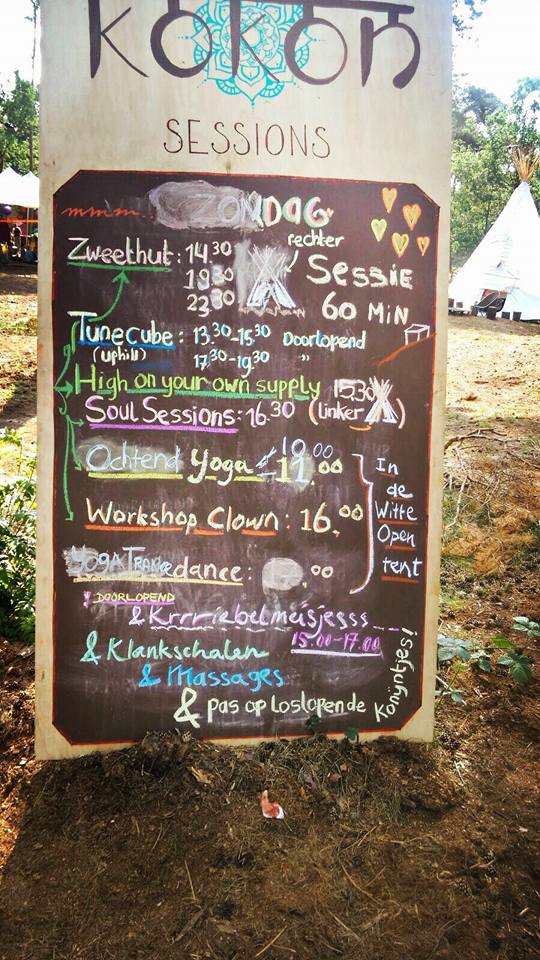 KOKON
SESSIONS
mmm... ZONDAG
Zweethut: 14.30
18.30
23.30
rechter
SESSIE
60 MIN
TUNECUBE: 13.30-15.30 Doorlopend
(uphill) 17.30-19.30 "
High on your own supply 15.30
Soul Sessions: 16.30 (linker)
Ochtend Yoga 10.00
11.00
Workshop Clown: 16.00
YOGA TRANCE dance: .00
In
de
Witte
Open
tent
! DOORLOPEND
& Krrriebelmeisjesss
15.00-17.00
& Klankschalen
& Massages
& pas op loslopende
Konijntjes!